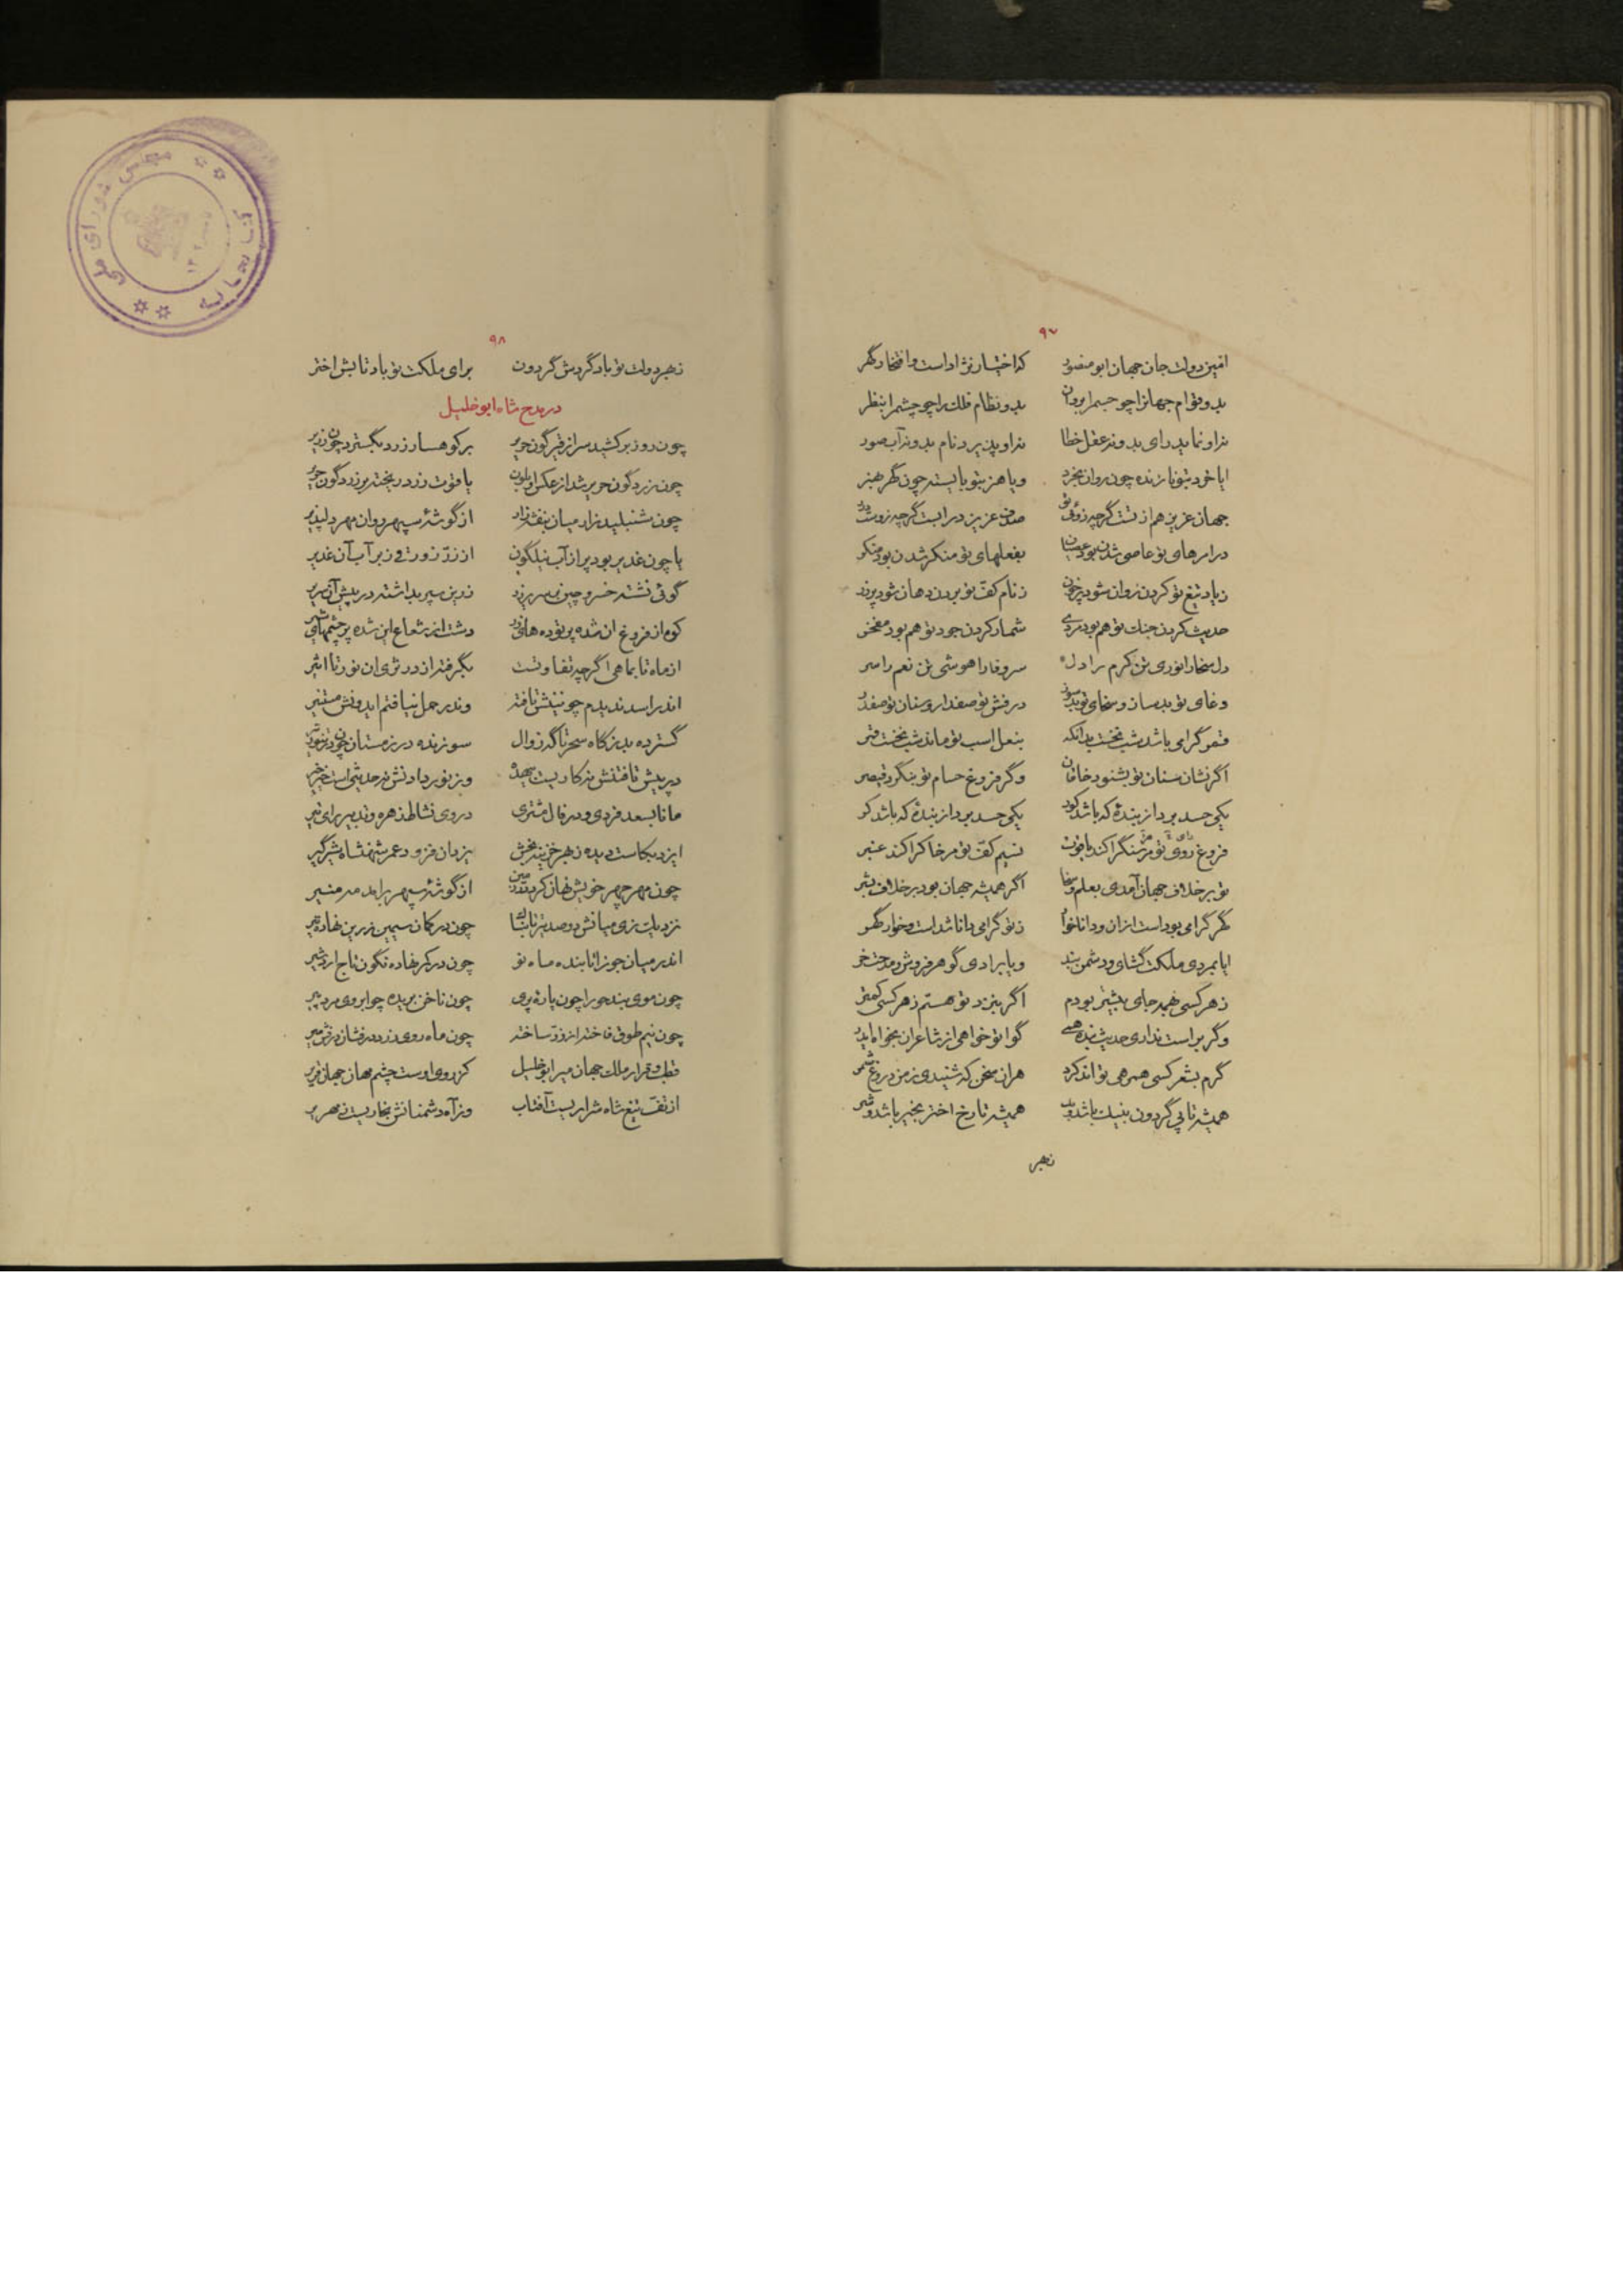 ۹۷
امین دولت جان جهان ابو منصور که اختیار نژاد است و افتخار گهر
بدو قوام جهانرا چو جسم را بروان بدو نظام فلک را چو چشم را بنظر
نه او نماید رای بد و نه عقل خطا نه او پذیرد نام بد و نه آب صور
ایا خرد بتو نازنده چون روان بخرد و یا هنر بتو بایسته چون گهر بهنر
جهان عزیز هم از تست گرچه زوئی تو صدف عزیز بدر است گرچه زوست درر
در امرهای تو عاصی شدن بود عصیان بفعلهای تو منکر شدن بود منکر
زیاد تیغ تو کردن روان شود پر خون ز نام کف تو بردن دهان شود پر زر
حدیث کردن جنک تو هم بود مردی شمار کردن جود تو هم بود مفخر
دل سخا را نوری تن کرم را دل سر وفا را هوشی تن نعم را سر
وغای تو بدسان و سخای تو بدسوز درفش تو صفدار و سنان تو صفدر
قمر گرامی باشد شب نخست بدانکه بنعل اسب تو ماند شب نخست قمر
اگر نشان سنان تو بشنود خاقان وگر فروغ حسام تو بنگرد قیصر
یکی حسد برد از بنده که باشد کور یکی حسد برد از بنده که باشد کر
فروغ روی تو مر سنگ را کند یاقوت نسیم کف تو مر خاک را کند عنبر
تو بر خلاف جهان آمدی بعلم و سخا اگر همیشه جهان بود بر خلاف بشر
گهر گرامی بوداست ازان و دانا خوار ز تو گرامی دانا شداست و خوار گهر
ایا بمردی ملکت گشای و دشمن بند و یا برادی گوهر فروش و مدحت خر
ز هر کسی بهمه جای بیشتر بودم اگر بنزد تو هستم ز هر کسی کمتر
وگر براست نداری حدیث بنده همی گوا تو خواهی از شاعران بخواه ایدر
گرم بشعر کسی همرهی تواند کرد هران سخن که شنیدی ز من دروغ شمر
همیشه تا پی گردون بنیک باشد و بد همیشه تا رخ اختر بخیر باشد و شر
نهر
۹۸
بهر دولت تو باد گردش گردون برای ملکت تو باد تابش اختر
در مدح شاه ابو خلیل
چون روز بر کشید سر از قیرگون حریر بر کوهسار زر بگسترد چون زریر
چون زردگون حریر شد از عکس او بلون یاقوت زرد ریخته بر زردگون حریر
چون شنبلید زار میان بنفشه زار از گوشهٔ سپهر روان مهر دلپذیر
یا چون غدیر بود پر از آب نیلگون از زر زورقی زبر آب آن غدیر
گوئی نشسته خسرو چین بر سریر زر زرین سپر بداشته در پیش آن سریر
کوه از فروغ آن شده پر توده های زر دشت از شعاع این شده پر چشمهای شیر
از ماه تا بماهی اگرچه تفاوتست بگرفته از در ثری آن نور تا اثیر
اندر اسد ندیدم چونینش تافته وندر حمل نیافتم ایدونش مستنیر
گسترده بد ز گاه سحر تا گه زوال سوزنده در زمستان چون در تموز تیر
در پیش تافتنش نه کاریست بیهده وین نور دادنش نه حدیثی است خیر خیر
مانا بسعد فردی و در فال مشتری در وی نشاط زهره و تدبیر رای تیر
ایزد بکاست دیده ز بهر خزینه بخش یزدان فزود عمر شهنشاه شیرگیر
چون مهر چهر خویش نهان کرد در زمین از گوشهٔ سپهر برآمد مه منیر
نزدیک زی میانش دو صد تیر تابناک چون در کمان سیمین زرین نهاده تیر
اندر میان جوزا تابنده ماه نو چون در کمر نهاده نگون تاج اردشیر
چون موی بند حورا چون یارهٔ پری چون ناخن بریده چو ابروی مرد پیر
چون نیم طوق فاخته از زر ساخته چون ماه روی زرد درفشان درفش میر
قطب وقرار ملک جهان میر ابو خلیل کز روی اوست چشم مهان جهان قریر
از تف تیغ شاه شراریست آفتاب وز آه دشمنانش بخاریست زمهریر